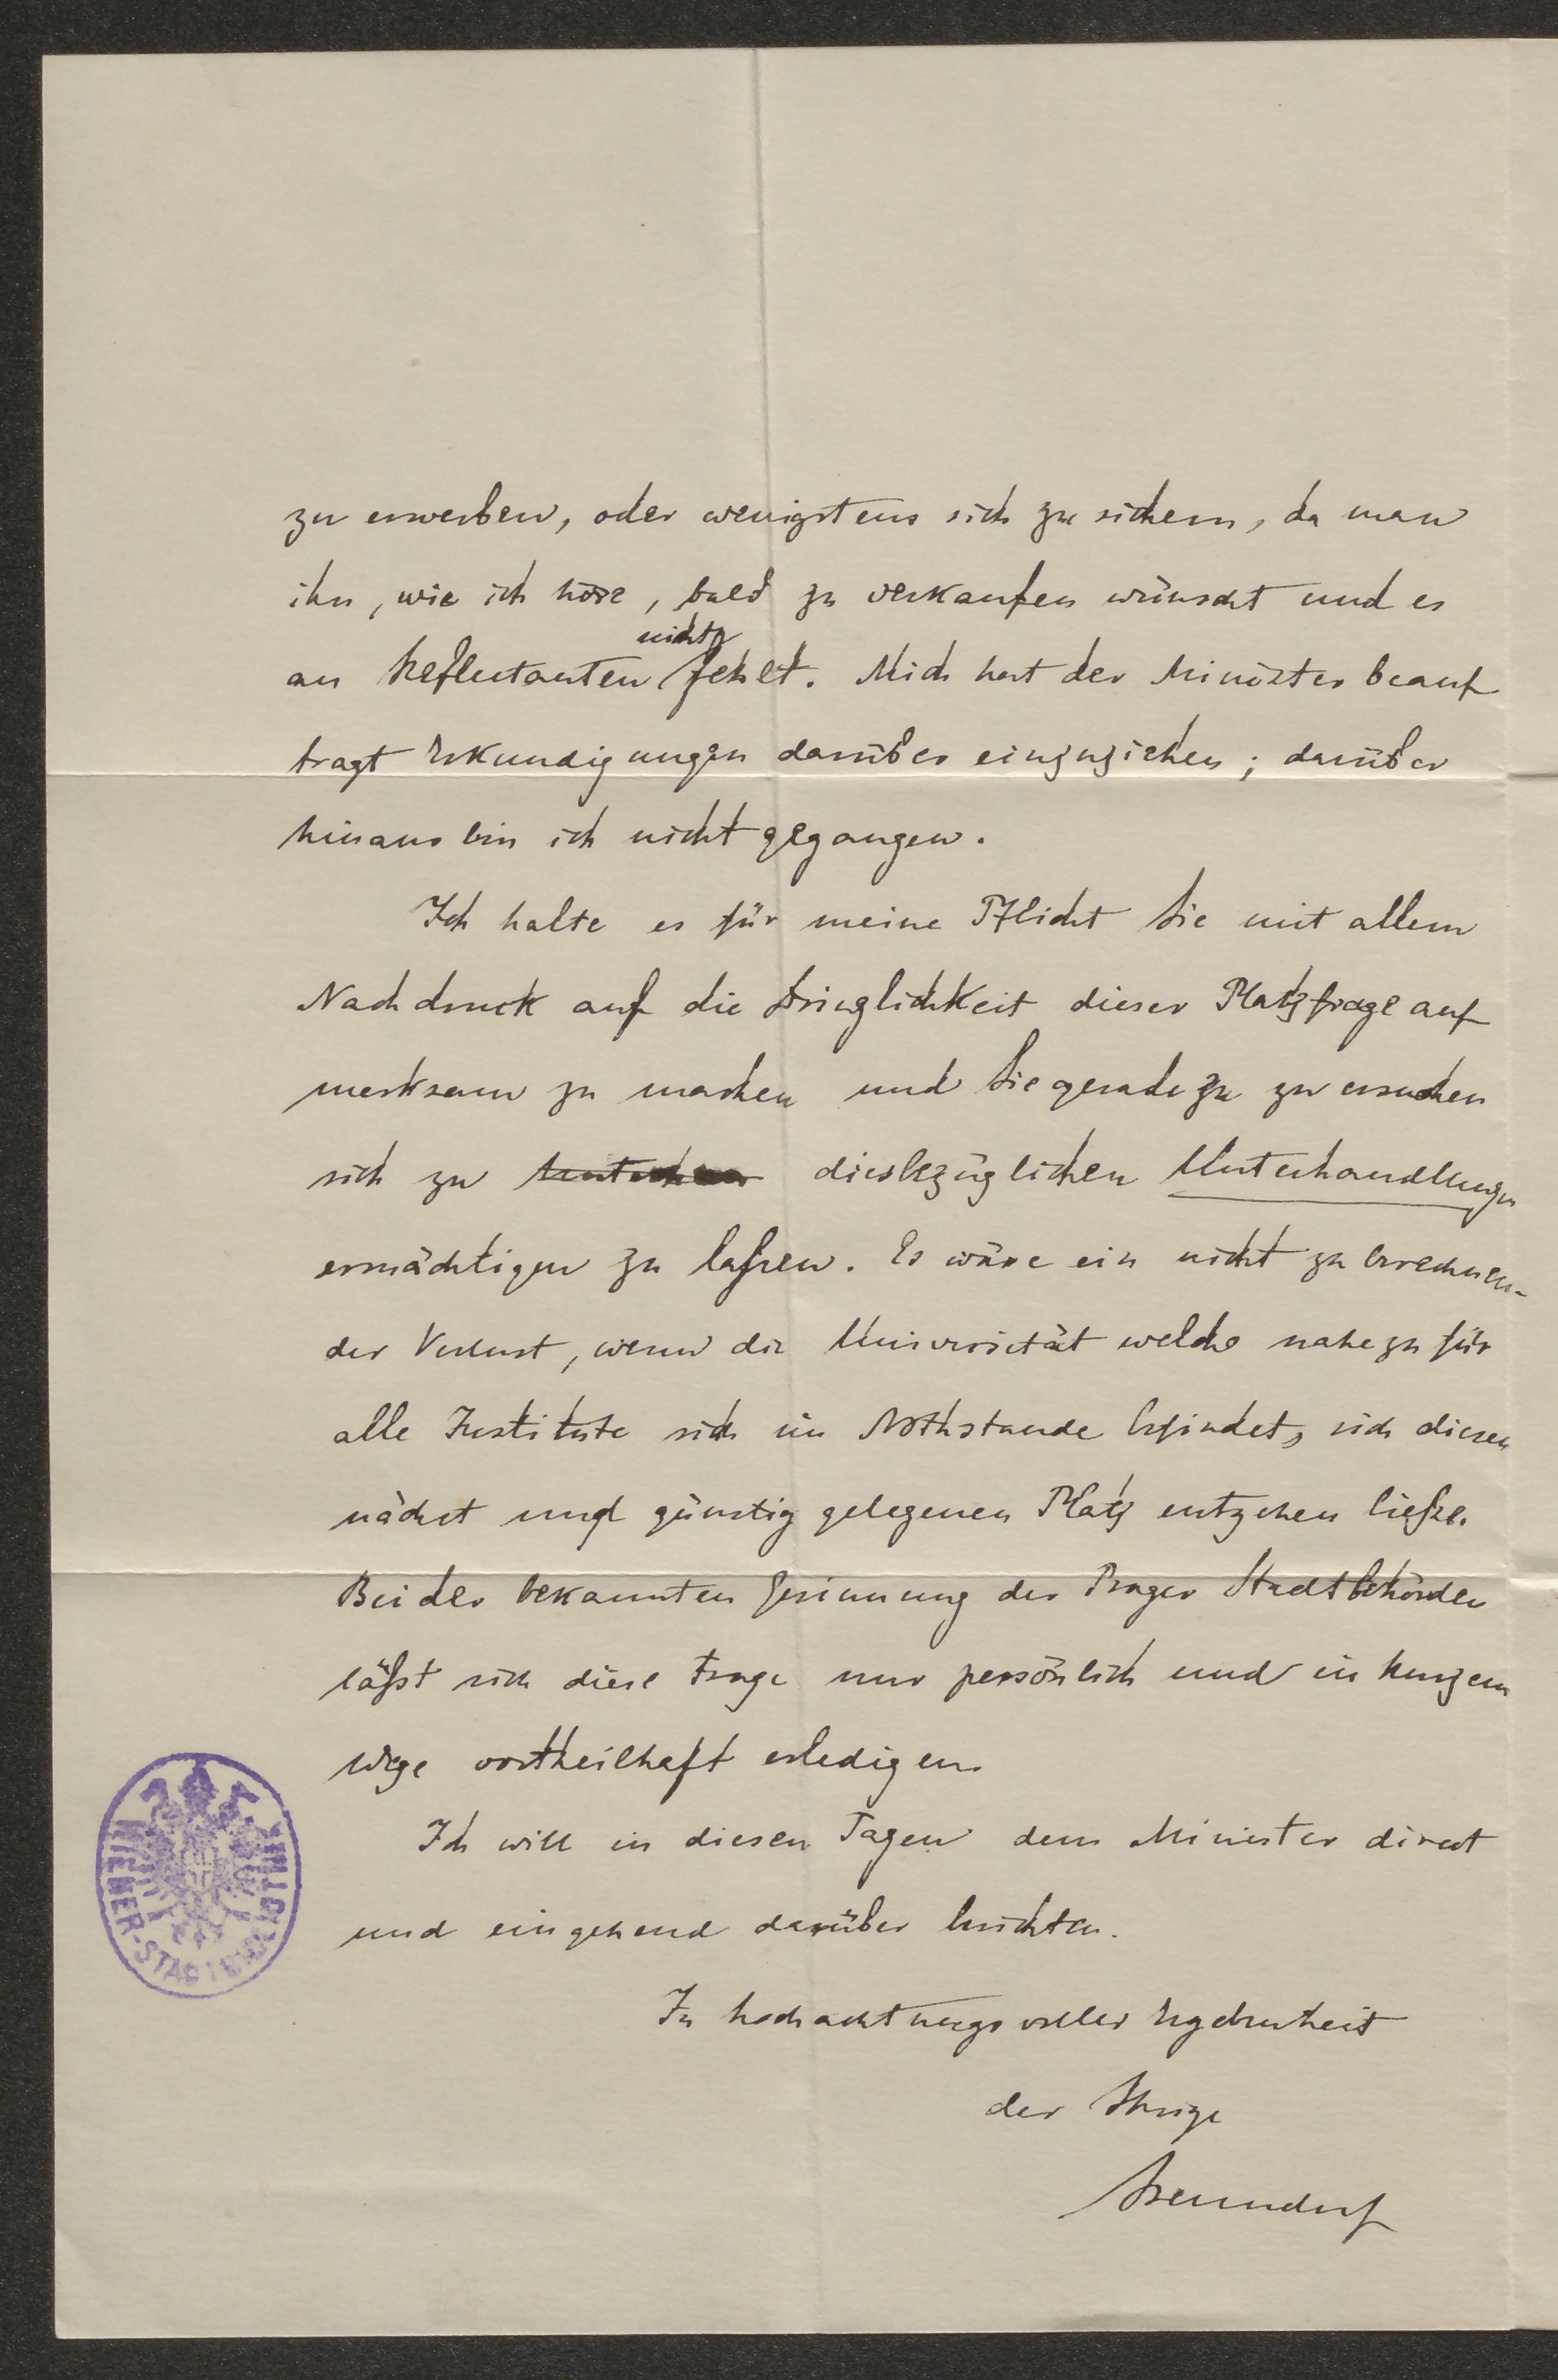 zu erwerben, oder wenigstens sich zu sichern, da man
ihn, wie ich höre, bald zu verkaufen wünscht und es
nicht
an Reflectanten fehlt. Mich hat der Minister beauf
tragt Erkundigungen darüber einzuziehen; darüber
hinaus bin ich nicht gegangen.
Ich halte es für meine Pflicht Sie mit allem
Nachdruck auf die Dringlichkeit dieser Platzfrage auf
merksam zu machen und Sie geradezu zu ersuchen
sich zu diesbezüglichen Unterhandlungen
ermächtigen zu laßen. Es wäre ein nicht zu berechnen-
der Verlust, wenn die Universität welche nahezu für
alle Institute sich im Nothstande befindet, sich diesen
nächst und günstig gelegenen Platz entgehen ließe.
Bei der bekannten Gesinnung der Prager Stadtbehörden
läßt sich diese Frage nur persönlich und in kurzem
Wege vortheilhaft erledigen.
Ich will in diesen Tagen dem Minister direct
und eingehend darüber berichten.
In hochachtungsvoller Ergebenheit
der Ihrige
Benndorf
WIENER-STADTBIBLIOTHEK